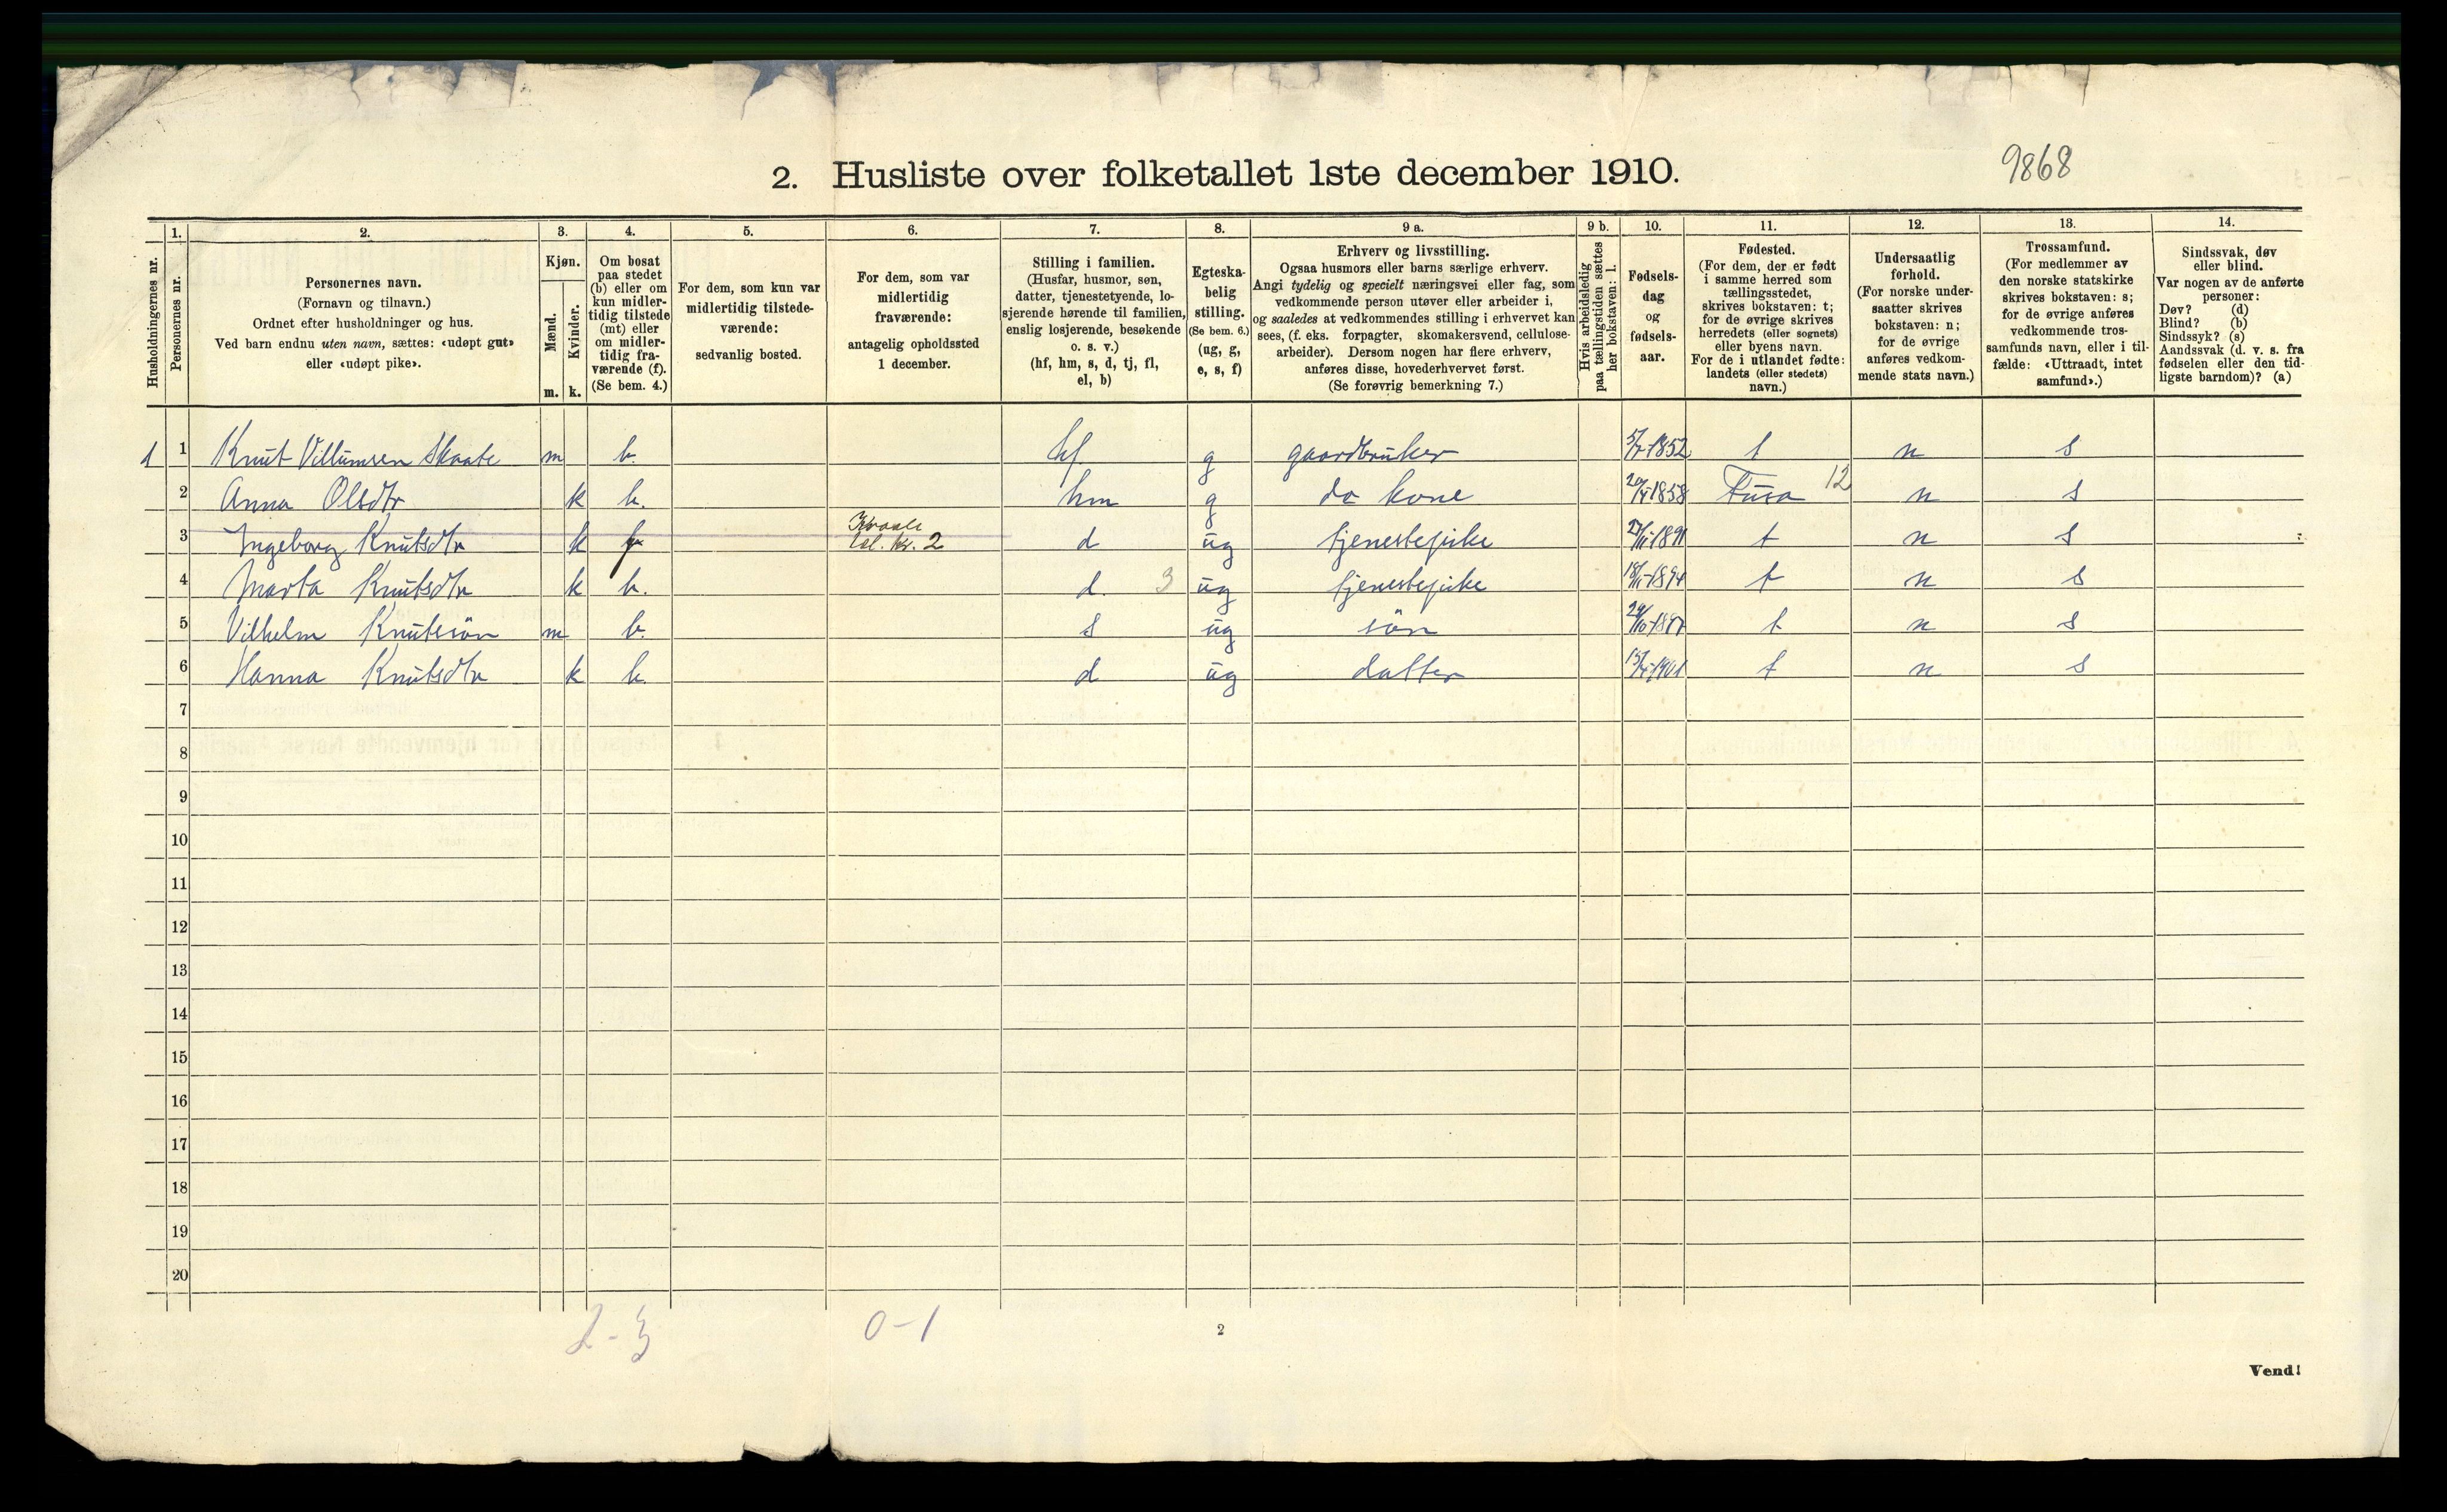 2. Husliste over folketallet 1ste december 1910.
9868
Husholdningernes nr.
1.
Personernes nr.
2.
Personernes navn.
(Fornavn og tilnavn.)
Ordnet efter husholdninger og hus.
Ved barn endnu uten navn, sættes: «udøpt gut»
eller «udøpt pike».
3.
Kjøn.
Mænd.
Kvinder.
m. k.
4.
Om bosat
paa stedet
(b) eller om
kun midler-
tidig tilstede
(mt) eller
om midler-
tidig fra-
værende (f).
(Se bem. 4.)
5.
For dem, som kun var
midlertidig tilstede-
værende:
sedvanlig bosted.
6.
For dem, som var
midlertidig
fraværende:
antagelig opholdssted
1 december.
7.
Stilling i familien.
(Husfar, husmor, søn,
datter, tjenestetyende, lo-
sjerende hørende til familien,
enslig losjerende, besøkende
o. s. v.)
(hf, hm, s, d, tj, fl,
el, b)
8.
Egteska-
belig
stilling.
(Se bem. 6.)
(ug, g,
e, s, f)
9 a.
Erhverv og livsstilling.
Ogsaa husmors eller barns særlige erhverv.
Angi tydelig og specielt næringsvei eller fag, som
vedkommende person utøver eller arbeider i,
og saaledes at vedkommendes stilling i erhvervet kan
sees, (f. eks. forpagter, skomakersvend, cellulose-
arbeider). Dersom nogen har flere erhverv,
anføres disse, hovederhvervet først.
(Se forøvrig bemerkning 7.)
9 b.
Hvis arbeidsledig
paa tællingstiden sættes
her bokstaven: l.
10.
Fødsels-
dag
og
fødsels-
aar.
11.
Fødested.
(For dem, der er født
i samme herred som
tællingsstedet,
skrives bokstaven: t;
for de øvrige skrives
herredets (eller sognets)
eller byens navn.
For de i utlandet fødte:
landets (eller stedets)
navn.)
12.
Undersaatlig
forhold.
(For norske under-
saatter skrives
bokstaven: n;
for de øvrige
anføres vedkom-
mende stats navn.)
13.
Trossamfund.
(For medlemmer av
den norske statskirke
skrives bokstaven: s;
for de øvrige anføres
vedkommende tros-
samfunds navn, eller i til-
fælde: «Uttraadt, intet
samfund».)
14.
Sindssvak, døv
eller blind.
Var nogen av de anførte
personer:
Døv? (d)
Blind? (b)
Sindssyk? (s)
Aandssvak (d. v. s. fra
fødselen eller den tid-
ligste barndom)? (a)
1 1 Knut Villumsen Skaate m b. hf. g gaardbruker 5/7-1852 t n s
2 Anna Olsdtr k b. hm g do kone 1858 Fusa 12 n s
3 Ingeborg Knutsdtr k f 2 d ug tjenestepike 1891 t n s
4 Marta Knutsdtr k b. d. 3 ug tjenestepike 1894 t n s
5 Vilhelm Knutsøn m b. s ug søn t n s
6 Hanna Knutsdtr k b. d ug datter 1901 t n s
7
8
9
10
11
12
13
14
15
16
17
18
19
20
2-3 0-1
2
Vend!